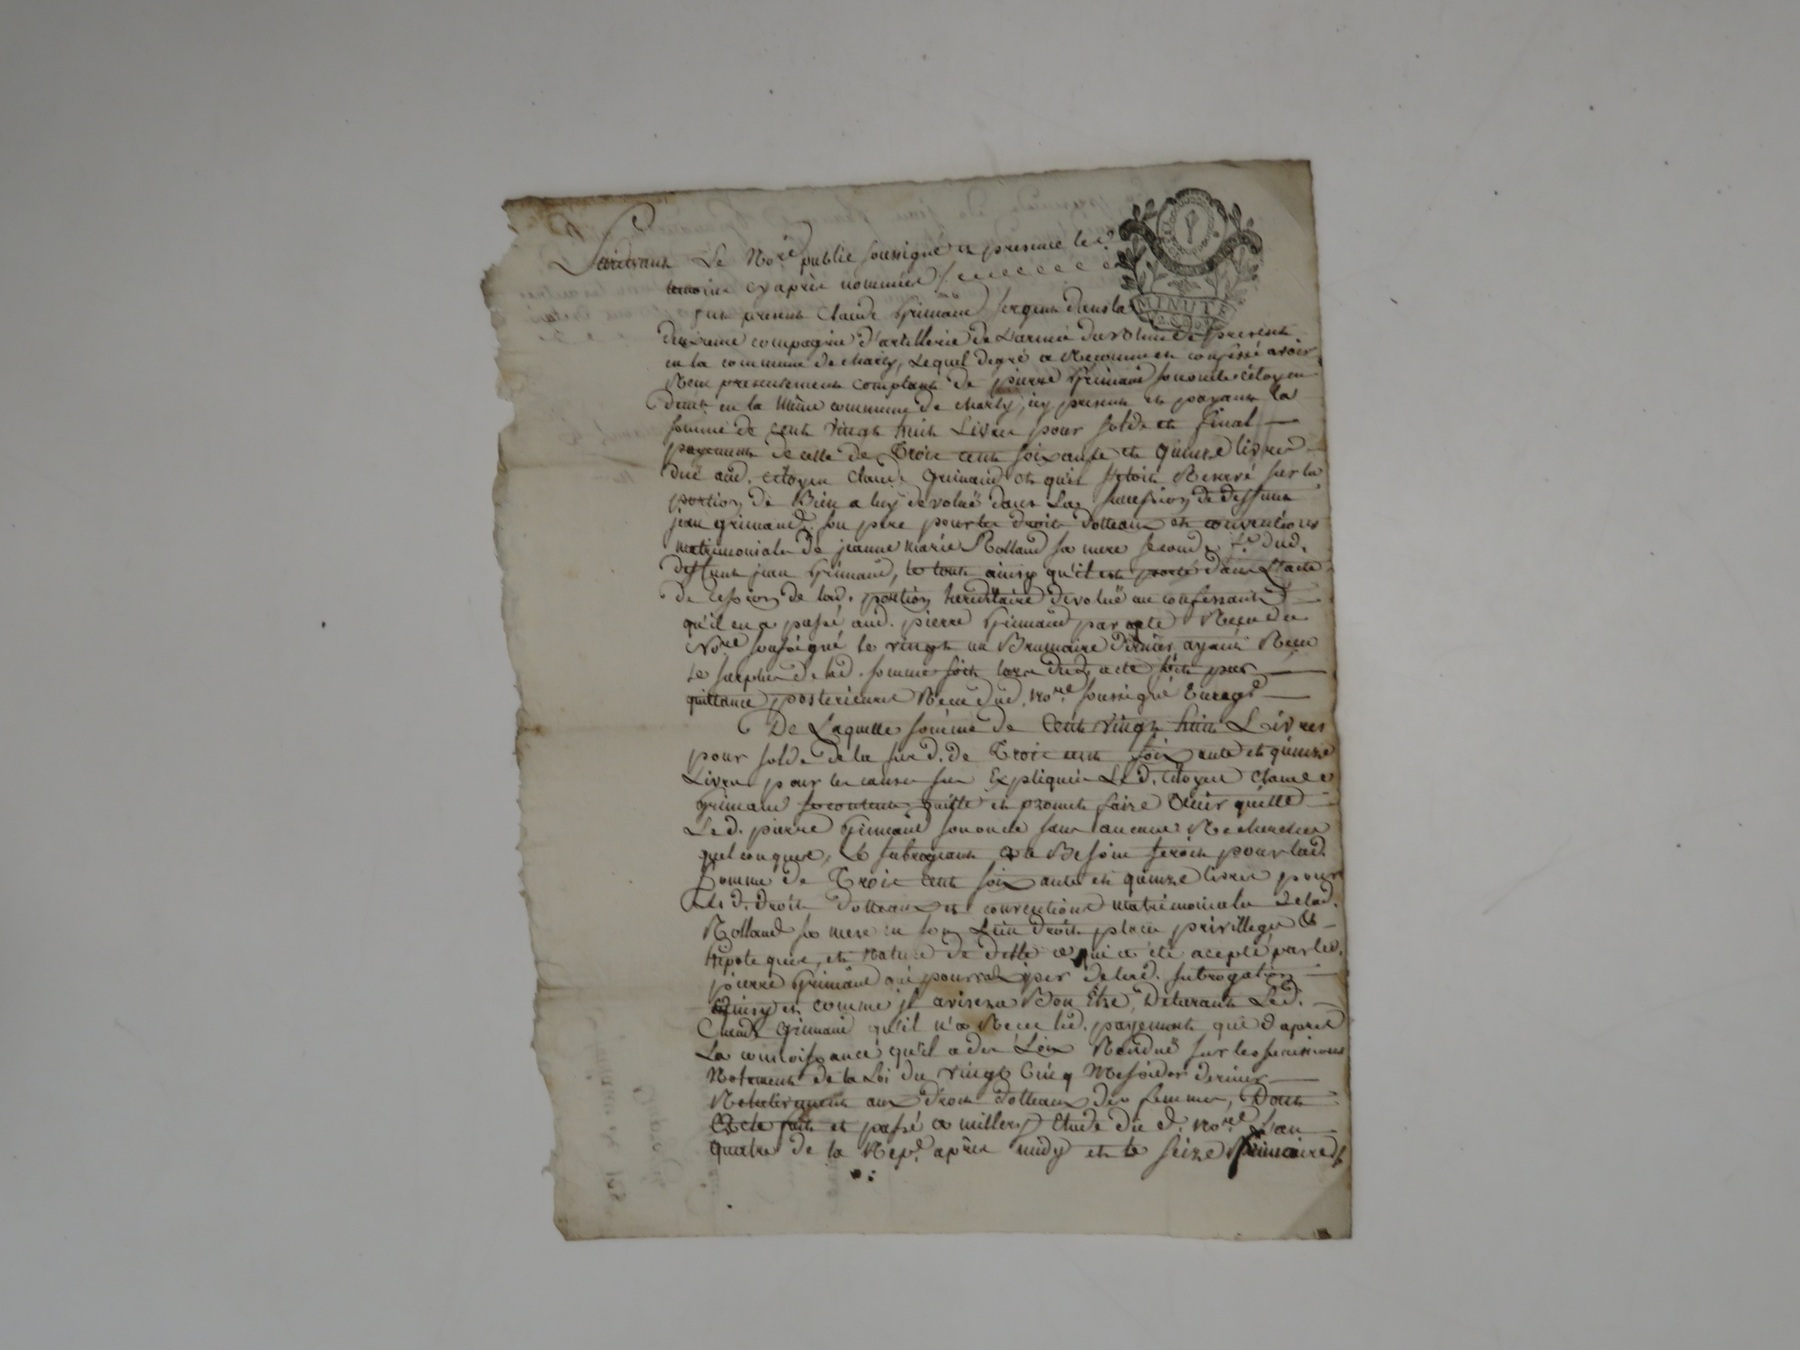 Pardevant Le No.re public soussigné et presence des
temoins cy après nommés
fut present Claude Grimaud sergent dans la
MINUTE
deuxieme compagnie d'artillerie de L'armée du Rhin de present
en la commune de charly, Lequel de gré a Reconnu et confessé avoir
Receu presentement comptant de pierre Grimaud son oncle citoyen
demt en la même commune de charly, icy present et payant la
somme de cent vingt huit Livres pour solde et final
payement de celle de Trois cent soixante et quinze livres
due aud. citoyen Claude Grimaud et qu'il s'etoit Reservé sur la
portion de Bien a luy devolue dans La succession de deffunt
jean grimaud son pere pour les droits dotteaux et conventions
matrimoniales de jeanne marie Rolland sa mere seconde f.e dud.
deffunt jean Grimaud, le tout ainsy qu'il est porté dans L'acte
de cession de lad. portion hereditaire devolue au confessant
qu'il en a passé aud. pierre Grimaud par acte Receu du
No.re soussigné le vingt un Brumaire dernier ayant Receu
le surplus de lad. somme soit lors dud. acte soit par
quittance posterieure Receue dud. no.re soussigné Enreg.
De Laquelle somme de Cent vingt huit Livres
pour solde de la sud. de Trois cent soixante et quinze
Livres pour les causes sus Expliquées Led. Citoyen Claude
Grimaud se contente quitte et promet faire tenir quitte
Led. pierre Grimaud son oncle sans aucune Recherches
quelconques, Le subrogeant de Besoin seroit pour lad.
somme de Trois cent soixante et quinze livres pour
Lesd. droits dotteaux et conventions matrimoniales de lad.
Rolland sa mere en son Lieu droit place privillege &
hipoteques, et Nature de dette ce qui a été acepté par led.
pierre Grimaud qui pourra user de lad. subrogation
ainsy et comme jl avisera Bon Etre, Declarant Led.
Claude Grimaud qu'il n'a Receu led. payement que d'apres
La connoissance qu'il a des Loix Rendue sur les successions
Notament de la Loi du vingt Cinq Messidor dernier
Relativement aux droits dotteaux des femmes, Dont
Acte fait et passé a millery Etude du d. no.re L'an
quatre de la Rep.e après midy et le seize frimaire